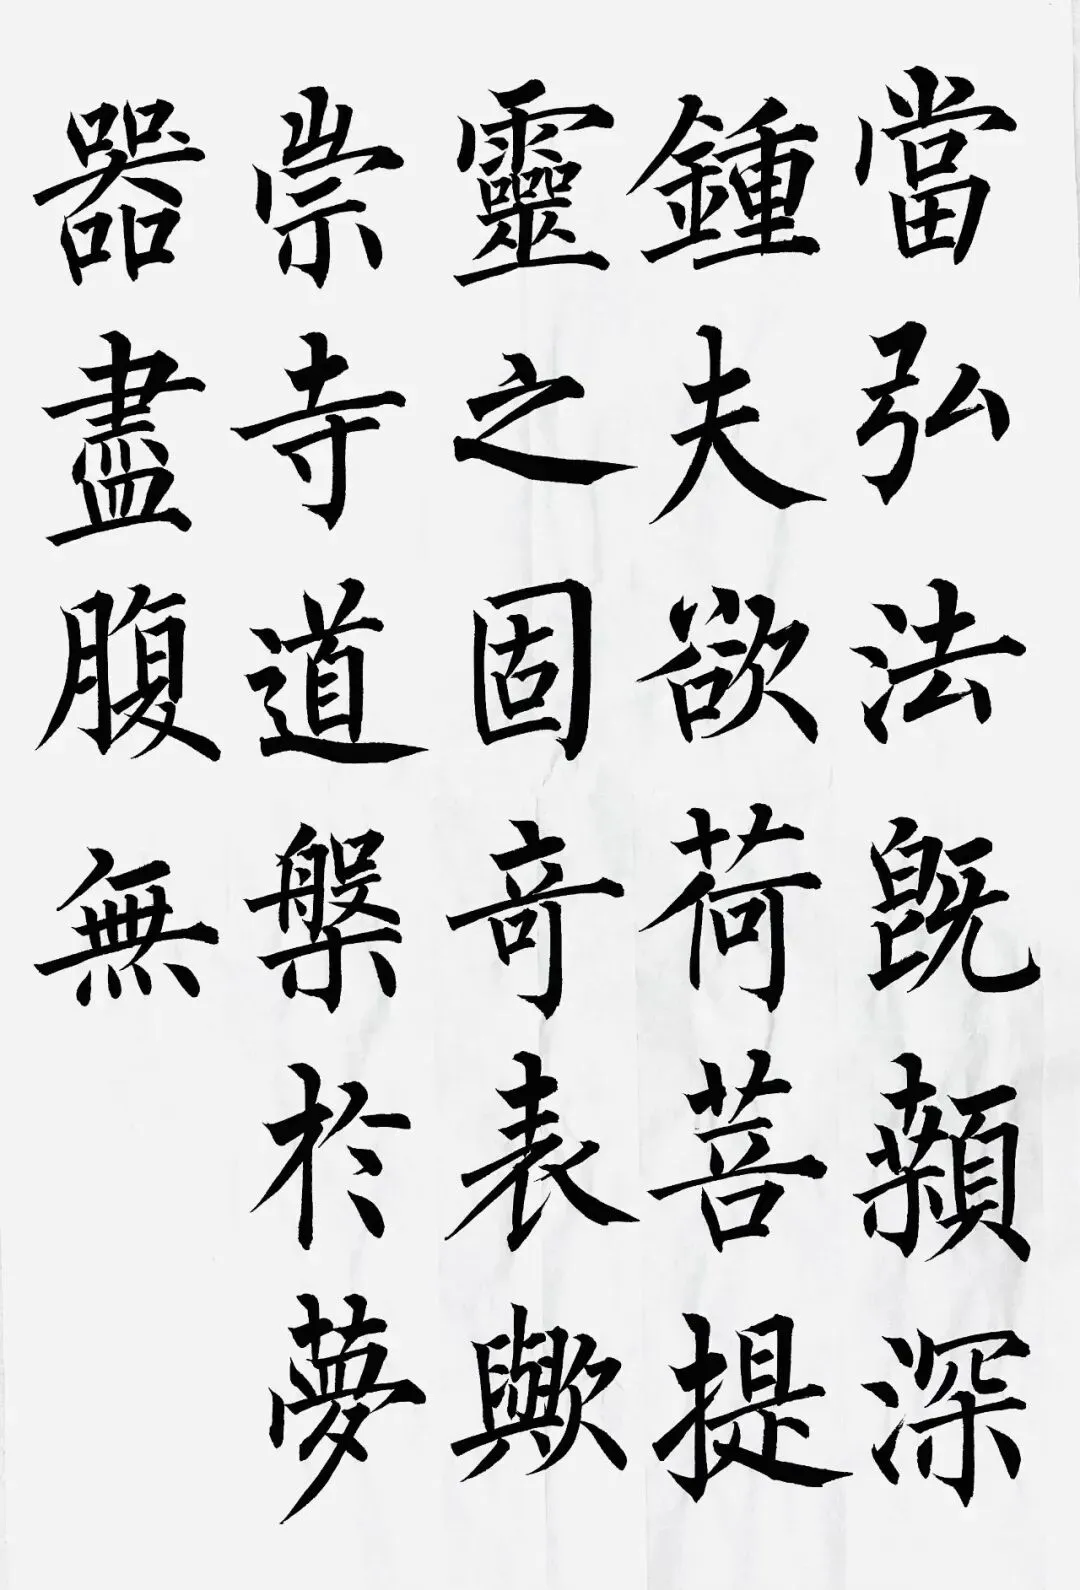 當弘法既顙深
鍾夫欲荷菩提
靈之固奇表歟
崇寺道槃於夢
器盡腹無